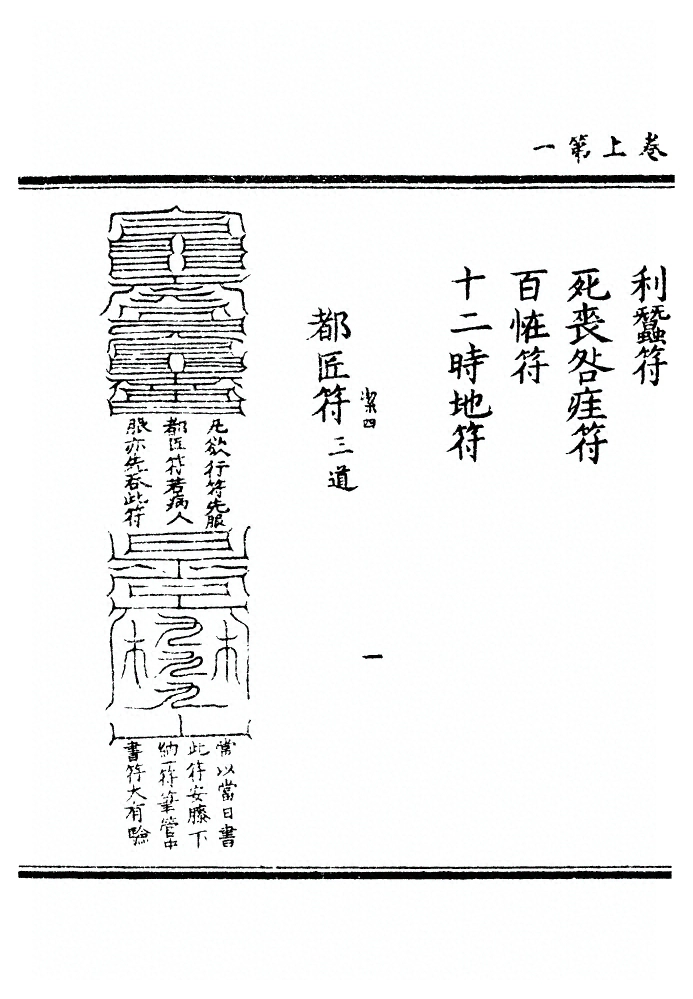 卷上第一
利蠶符
死喪咎疰符
百恠符
十二時地符
一
都匠符三道
凡欲行符先服
都匠符若病人
服亦先吞此符
常以當日書
此符安膝下
納一符筆管中
書符大有驗